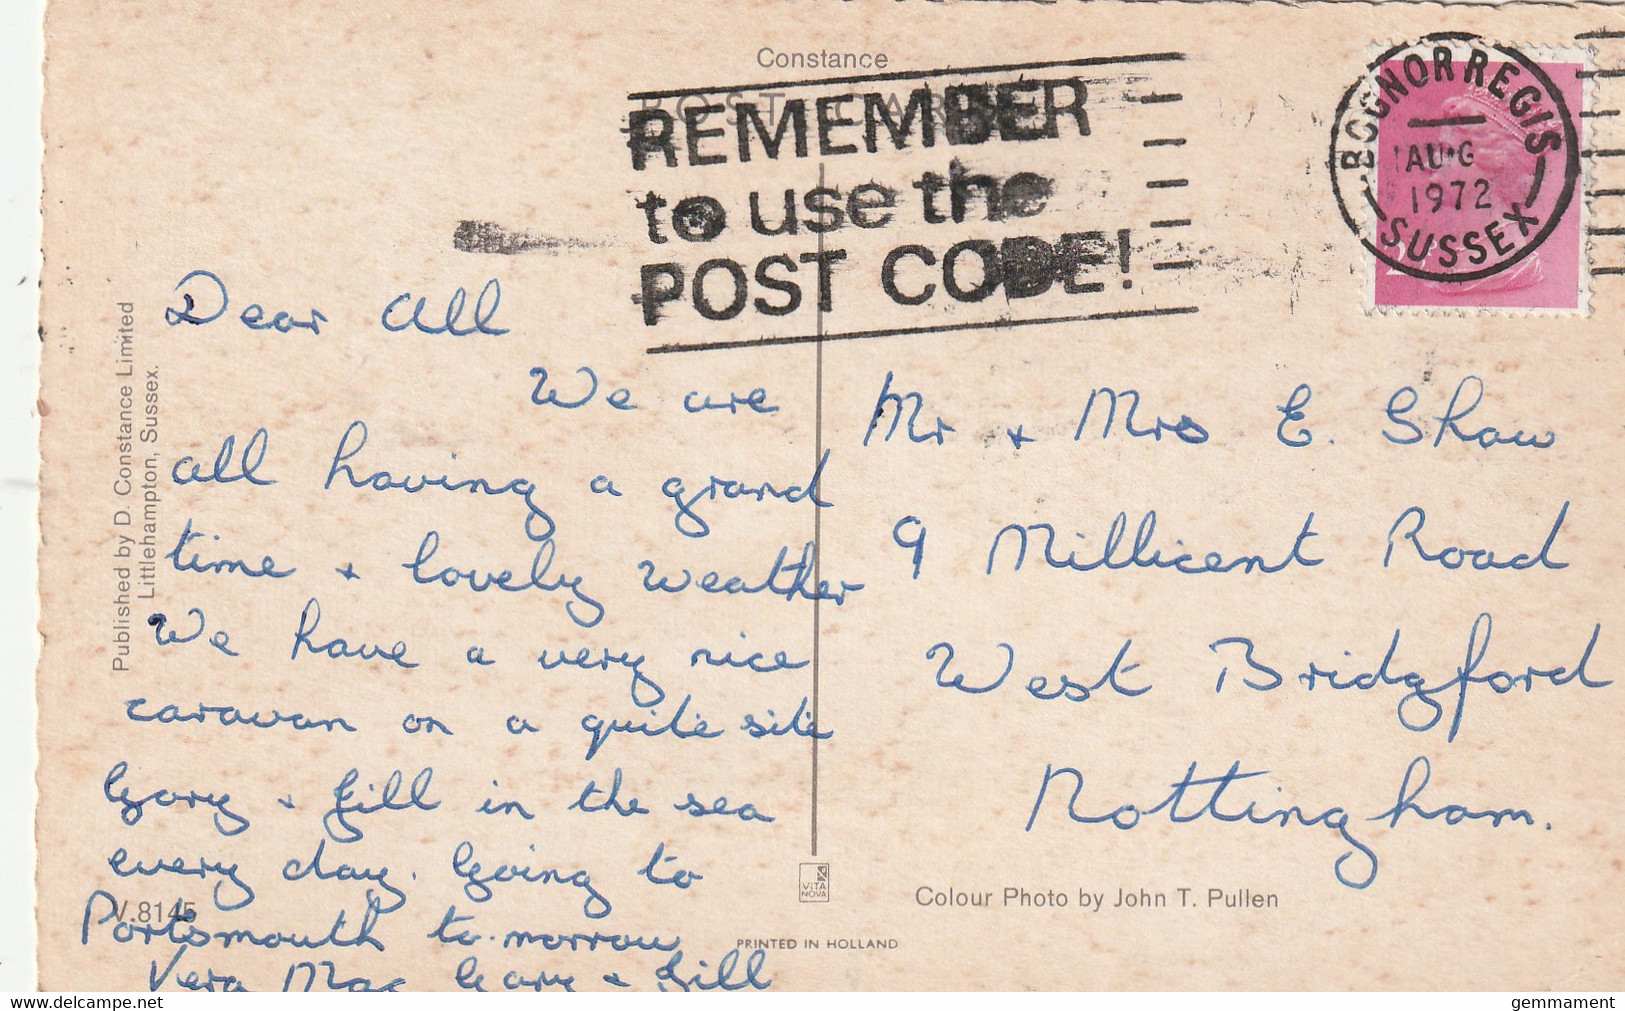 Constance
POST CARD
REMEMBER
to use the
POST CODE!
BOGNOR REGIS
AUG
1972
SUSSEX
Published by D. Constance Limited
Littlehampton, Sussex.
Dear All
We are
all having a grand
time + lovely weather
We have a very nice
caravan on a quite site
Gary + Jill in the sea
every day. Going to
Portsmouth to-morrow
Vera Mac Gary + Jill
Mr + Mrs E. Shaw
9 Millicent Road
West Bridgford
Nottingham.
V.8145
VITA
NOVA
Colour Photo by John T. Pullen
PRINTED IN HOLLAND
www.delcampe.net
gemmament